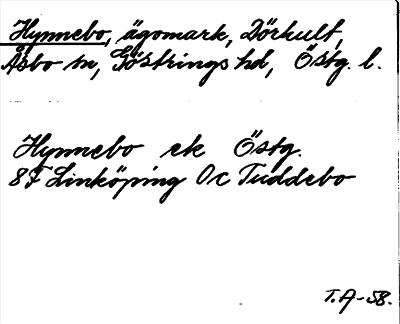 Hynnebo, ägomark, Dörhult,
Åsbo sn, Göstrings hd, Östg. l.
Hynnebo ek Östg.
8F Linköping 0c Tuddebo
T.A-58.